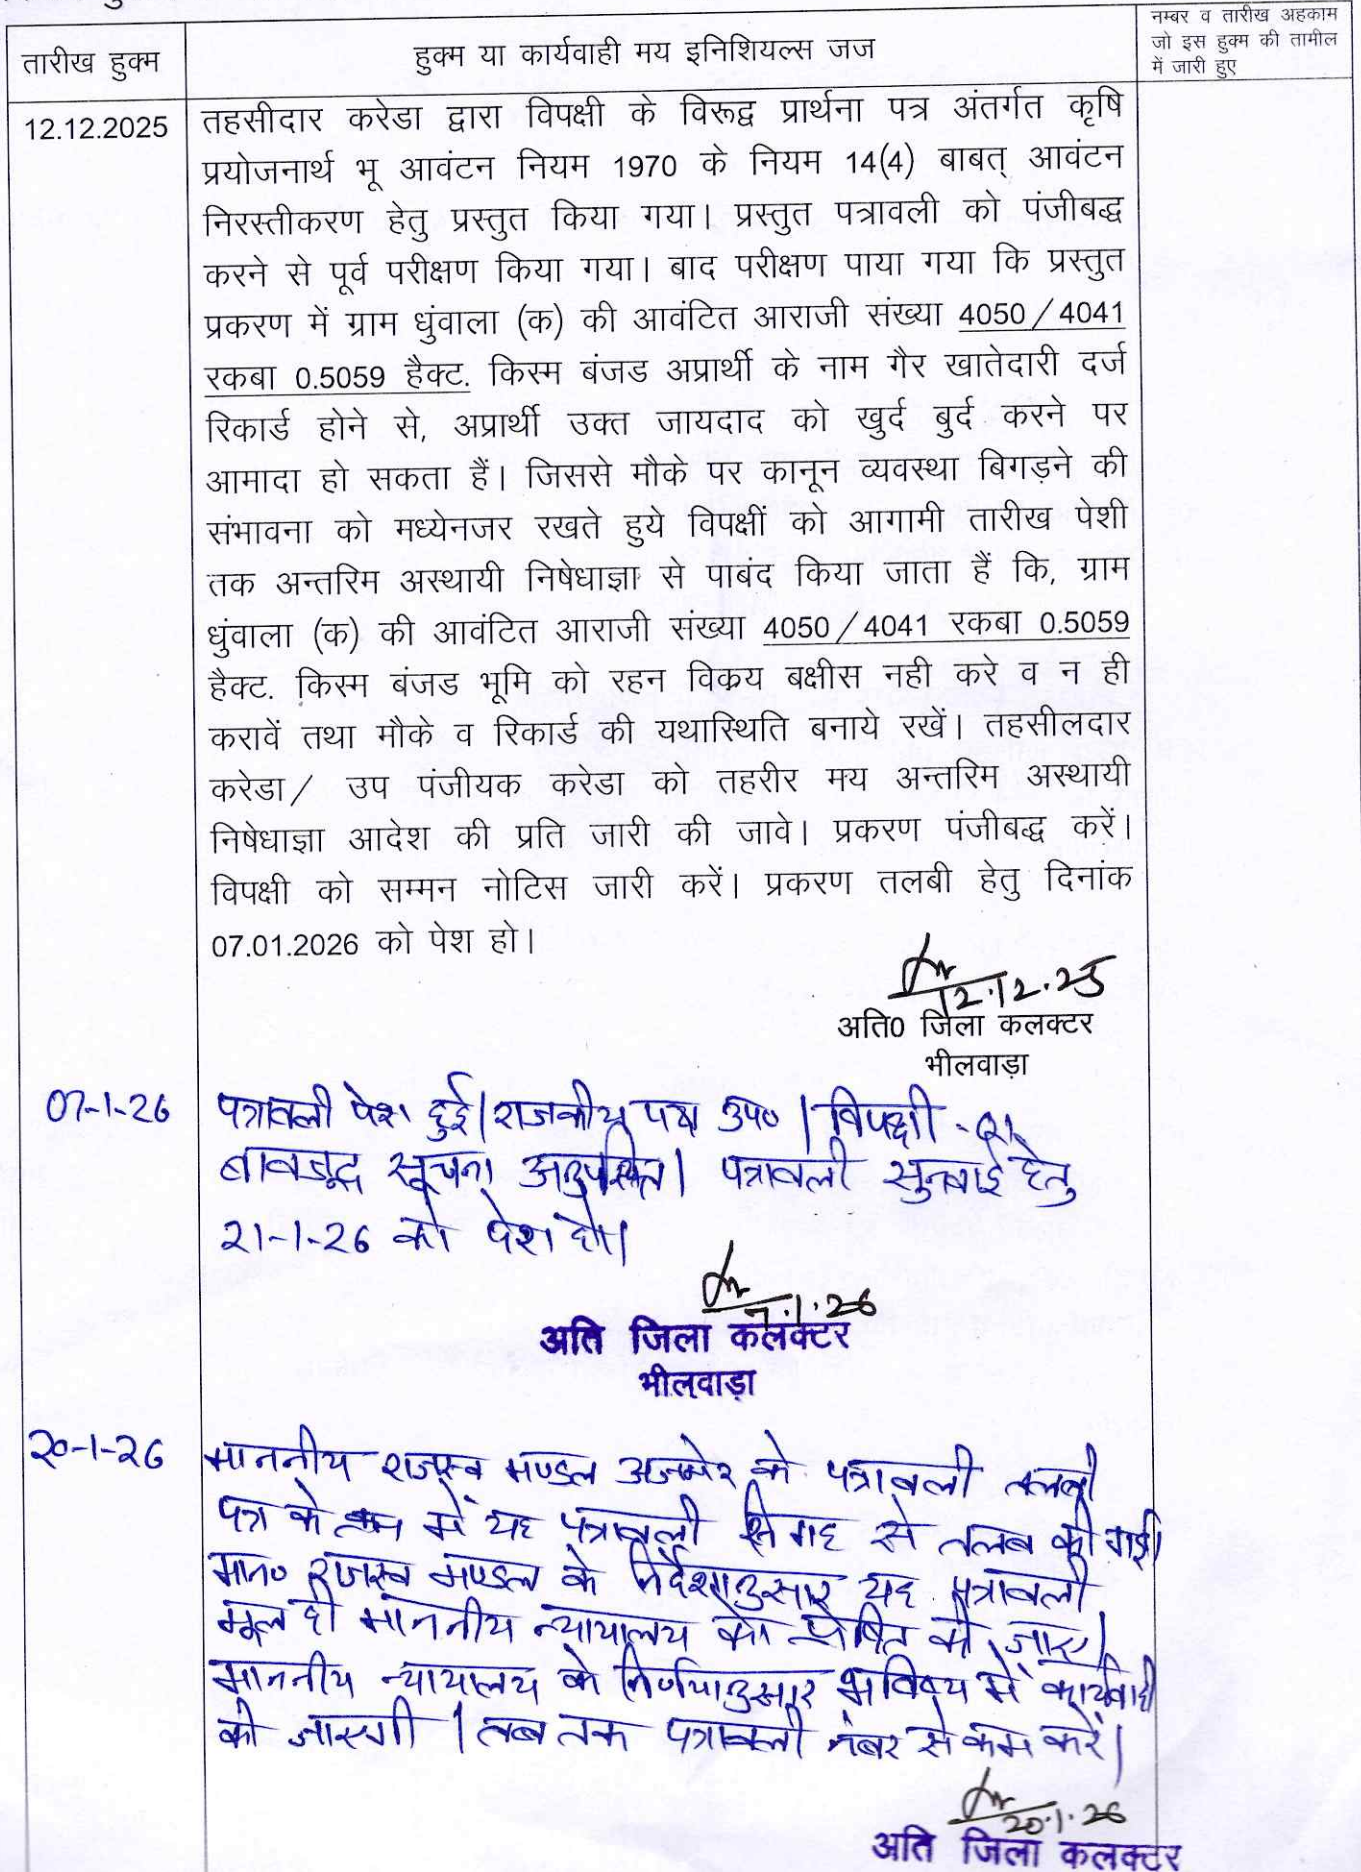 तारीख हुक्म
हुक्म या कार्यवाही मय इनिशियल्स जज
नम्बर व तारीख अहकाम
जो इस हुक्म की तामील
में जारी हुए
12.12.2025
तहसीदार करेडा द्वारा विपक्षी के विरूद्व प्रार्थना पत्र अंतर्गत कृषि
प्रयोजनार्थ भू आवंटन नियम 1970 के नियम 14(4) बाबत् आवंटन
निरस्तीकरण हेतु प्रस्तुत किया गया। प्रस्तुत पत्रावली को पंजीबद्ध
करने से पूर्व परीक्षण किया गया। बाद परीक्षण पाया गया कि प्रस्तुत
प्रकरण में ग्राम धुंवाला (क) की आवंटित आराजी संख्या 4050/4041
रकबा 0.5059 हैक्ट. किस्म बंजड अप्रार्थी के नाम गैर खातेदारी दर्ज
रिकार्ड होने से, अप्रार्थी उक्त जायदाद को खुर्द बुर्द करने पर
आमादा हो सकता हैं। जिससे मौके पर कानून व्यवस्था बिगड़ने की
संभावना को मध्येनजर रखते हुये विपक्षीं को आगामी तारीख पेशी
तक अन्तरिम अस्थायी निषेधाज्ञा से पाबंद किया जाता हैं कि, ग्राम
धुंवाला (क) की आवंटित आराजी संख्या 4050/4041 रकबा 0.5059
हैक्ट. किस्म बंजड भूमि को रहन विक्रय बक्षीस नही करे व न ही
करावें तथा मौके व रिकार्ड की यथास्थिति बनाये रखें। तहसीलदार
करेडा/ उप पंजीयक करेडा को तहरीर मय अन्तरिम अस्थायी
निषेधाज्ञा आदेश की प्रति जारी की जावे। प्रकरण पंजीबद्ध करें।
विपक्षी को सम्मन नोटिस जारी करें। प्रकरण तलबी हेतु दिनांक
07.01.2026 को पेश हो।
12.12.25
अति0 जिला कलक्टर
भीलवाड़ा
07-1-26
पत्रावली पेश हुई। राजकीय पक्ष उप०। विपक्षी
बावजूद सूचना अनुपस्थित। पत्रावली सुनवाई हेतु
21-1-26 को पेश हो।
7.1.26
अति जिला कलक्टर
भीलवाड़ा
20-1-26
माननीय राजस्व मण्डल अजमेर के पत्रावली तलबी
पत्र के क्रम में यह पत्रावली से तलब की गई।
मान० राजस्व मण्डल के निर्देशानुसार यह पत्रावली
मूल ही माननीय न्यायालय को प्रेषित की जाए।
माननीय न्यायालय के निर्णयानुसार भविष्य में कार्यवाही
की जाएगी। तब तक पत्रावली नंबर से कम करें।
20.1.26
अति जिला कलक्टर